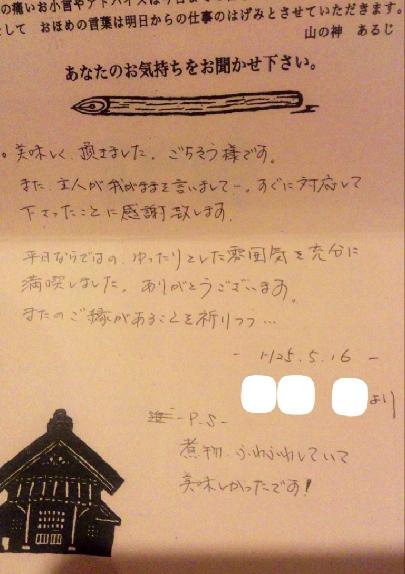 の痛いお小言やアドバイスは今日
として おほめの言葉は明日からの仕事のはげみとさせていただきます。
山の神 あるじ
あなたのお気持ちをお聞かせ下さい。
。美味しく、頂きました。ごちそう様です。
また、主人が我がままを言いまして…。すぐに対応して
下さったことに感謝致します。
平日ならではの、ゆったりとした雰囲気を充分に
満喫しました。ありがとうございます。
またのご縁があることを祈りつつ…
- H25.5.16 -
より
-P.S-
煮物、ふわふわしていて
美味しかったです!